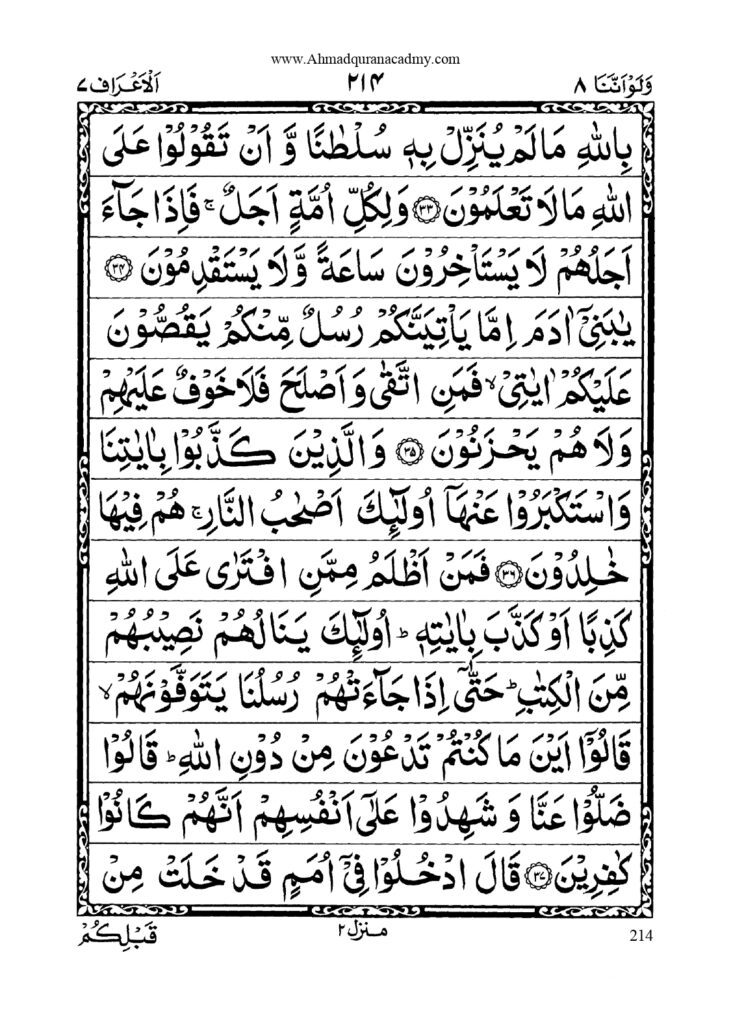 www.Ahmadquranacadmy.com
وَلَوْاَنَّنَا ۸ ۲۱۴ اَلْاَعْرَاف ۷
بِاللّٰهِ مَا لَمْ يُنَزِّلْ بِهٖ سُلْطٰنًا وَّ اَنْ تَقُوْلُوْا عَلَى
اللّٰهِ مَا لَا تَعْلَمُوْنَ ﴿۳۳﴾ وَلِكُلِّ اُمَّةٍ اَجَلٌ ۚ فَاِذَا جَآءَ
اَجَلُهُمْ لَا يَسْتَاْخِرُوْنَ سَاعَةً وَّلَا يَسْتَقْدِمُوْنَ ﴿۳۴﴾
يٰبَنِيْٓ اٰدَمَ اِمَّا يَاْتِيَنَّكُمْ رُسُلٌ مِّنْكُمْ يَقُصُّوْنَ
عَلَيْكُمْ اٰيٰتِيْ ۙ فَمَنِ اتَّقٰى وَاَصْلَحَ فَلَا خَوْفٌ عَلَيْهِمْ
وَلَا هُمْ يَحْزَنُوْنَ ﴿۳۵﴾ وَالَّذِيْنَ كَذَّبُوْا بِاٰيٰتِنَا
وَاسْتَكْبَرُوْا عَنْهَآ اُولٰٓئِكَ اَصْحٰبُ النَّارِ ۚ هُمْ فِيْهَا
خٰلِدُوْنَ ﴿۳۶﴾ فَمَنْ اَظْلَمُ مِمَّنِ افْتَرٰى عَلَى اللّٰهِ
كَذِبًا اَوْ كَذَّبَ بِاٰيٰتِهٖ ؕ اُولٰٓئِكَ يَنَالُهُمْ نَصِيْبُهُمْ
مِّنَ الْكِتٰبِ ؕ حَتّٰٓى اِذَا جَآءَتْهُمْ رُسُلُنَا يَتَوَفَّوْنَهُمْ ۙ
قَالُوْٓا اَيْنَ مَا كُنْتُمْ تَدْعُوْنَ مِنْ دُوْنِ اللّٰهِ ؕ قَالُوْا
ضَلُّوْا عَنَّا وَ شَهِدُوْا عَلٰٓى اَنْفُسِهِمْ اَنَّهُمْ كَانُوْا
كٰفِرِيْنَ ﴿۳۷﴾ قَالَ ادْخُلُوْا فِيْٓ اُمَمٍ قَدْ خَلَتْ مِنْ
214 منزل ۲ قَبْلِكُمْ